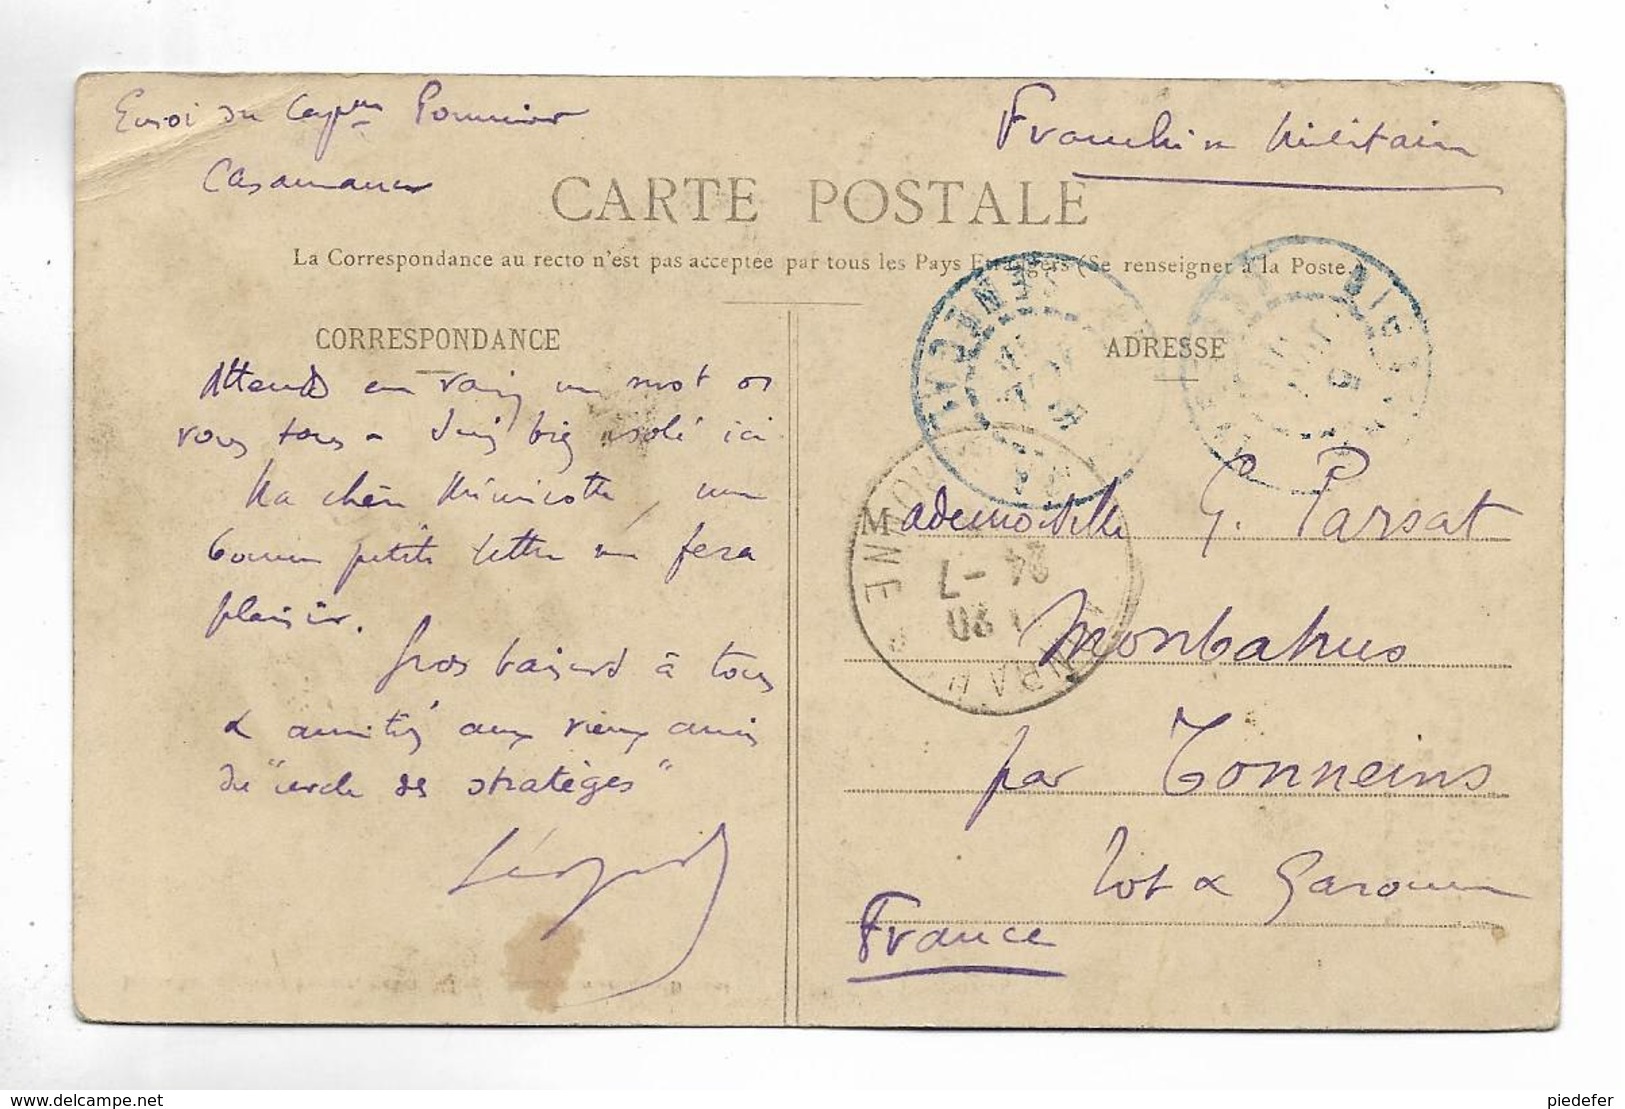 Envoi du Cap^ne Pommier
Casamance
Franchise Militaire
CARTE POSTALE
La Correspondance au recto n'est pas acceptée par tous les Pays Etrangers (Se renseigner à la Poste.)
CORRESPONDANCE
Attends en vain un mot de
vous tous - Suis bien isolé ici
Ma chère Mimicotte, une
bonne petite lettre me fera
plaisir.
Gros baisers à tous
& amitiés aux vieux amis
du "cercle des stratèges"
Léopold
ADRESSE
SÉNÉGAL
24 -7
20
Mademoiselle G. Parsat
Monbahus
par Tonneins
Lot & Garonne
France
piedefer